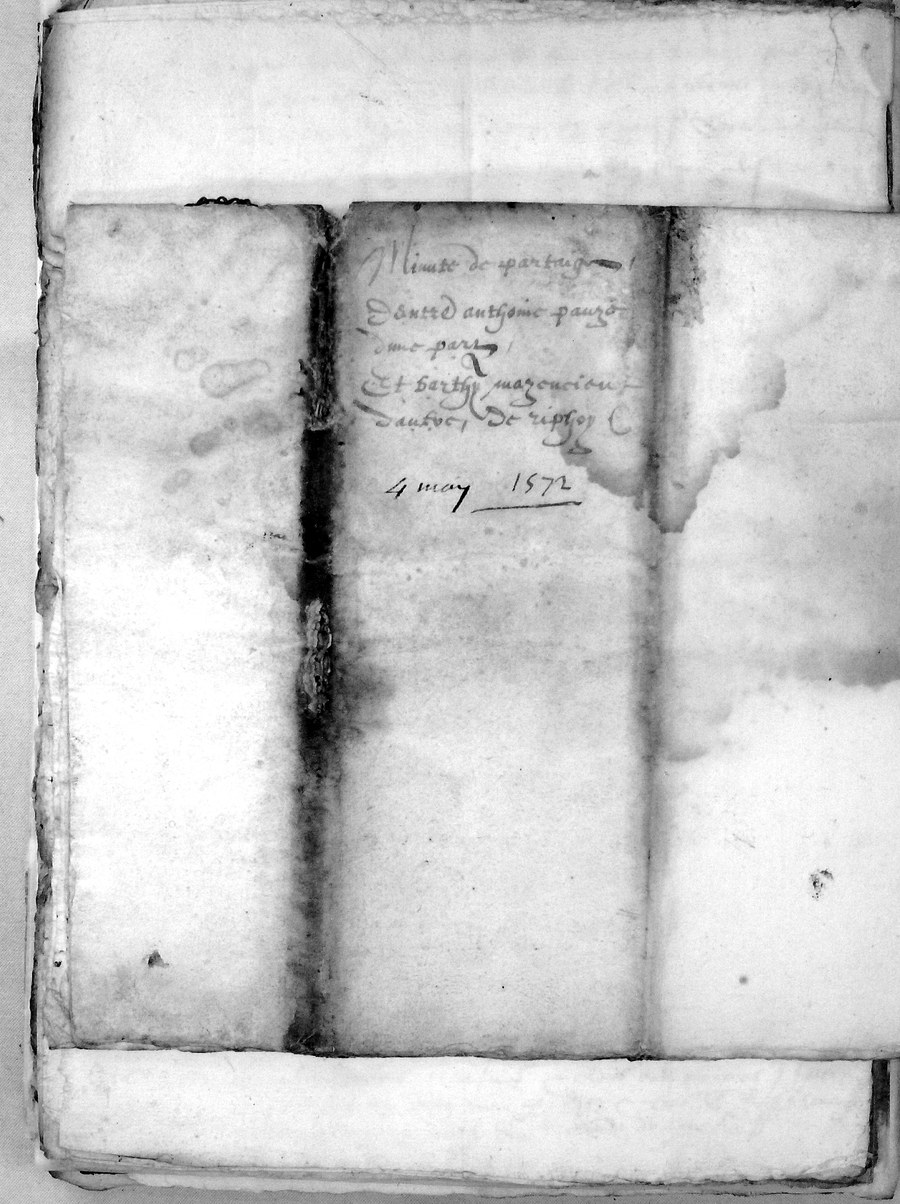 Minute de partaige
Dentre anthoine pauze
dune part,
Et barthy mazencieu
dautre, De riphoy
4 may 1572